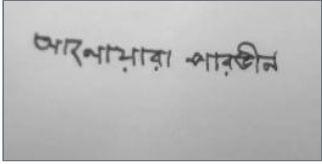 আনোয়ারা পারভীন